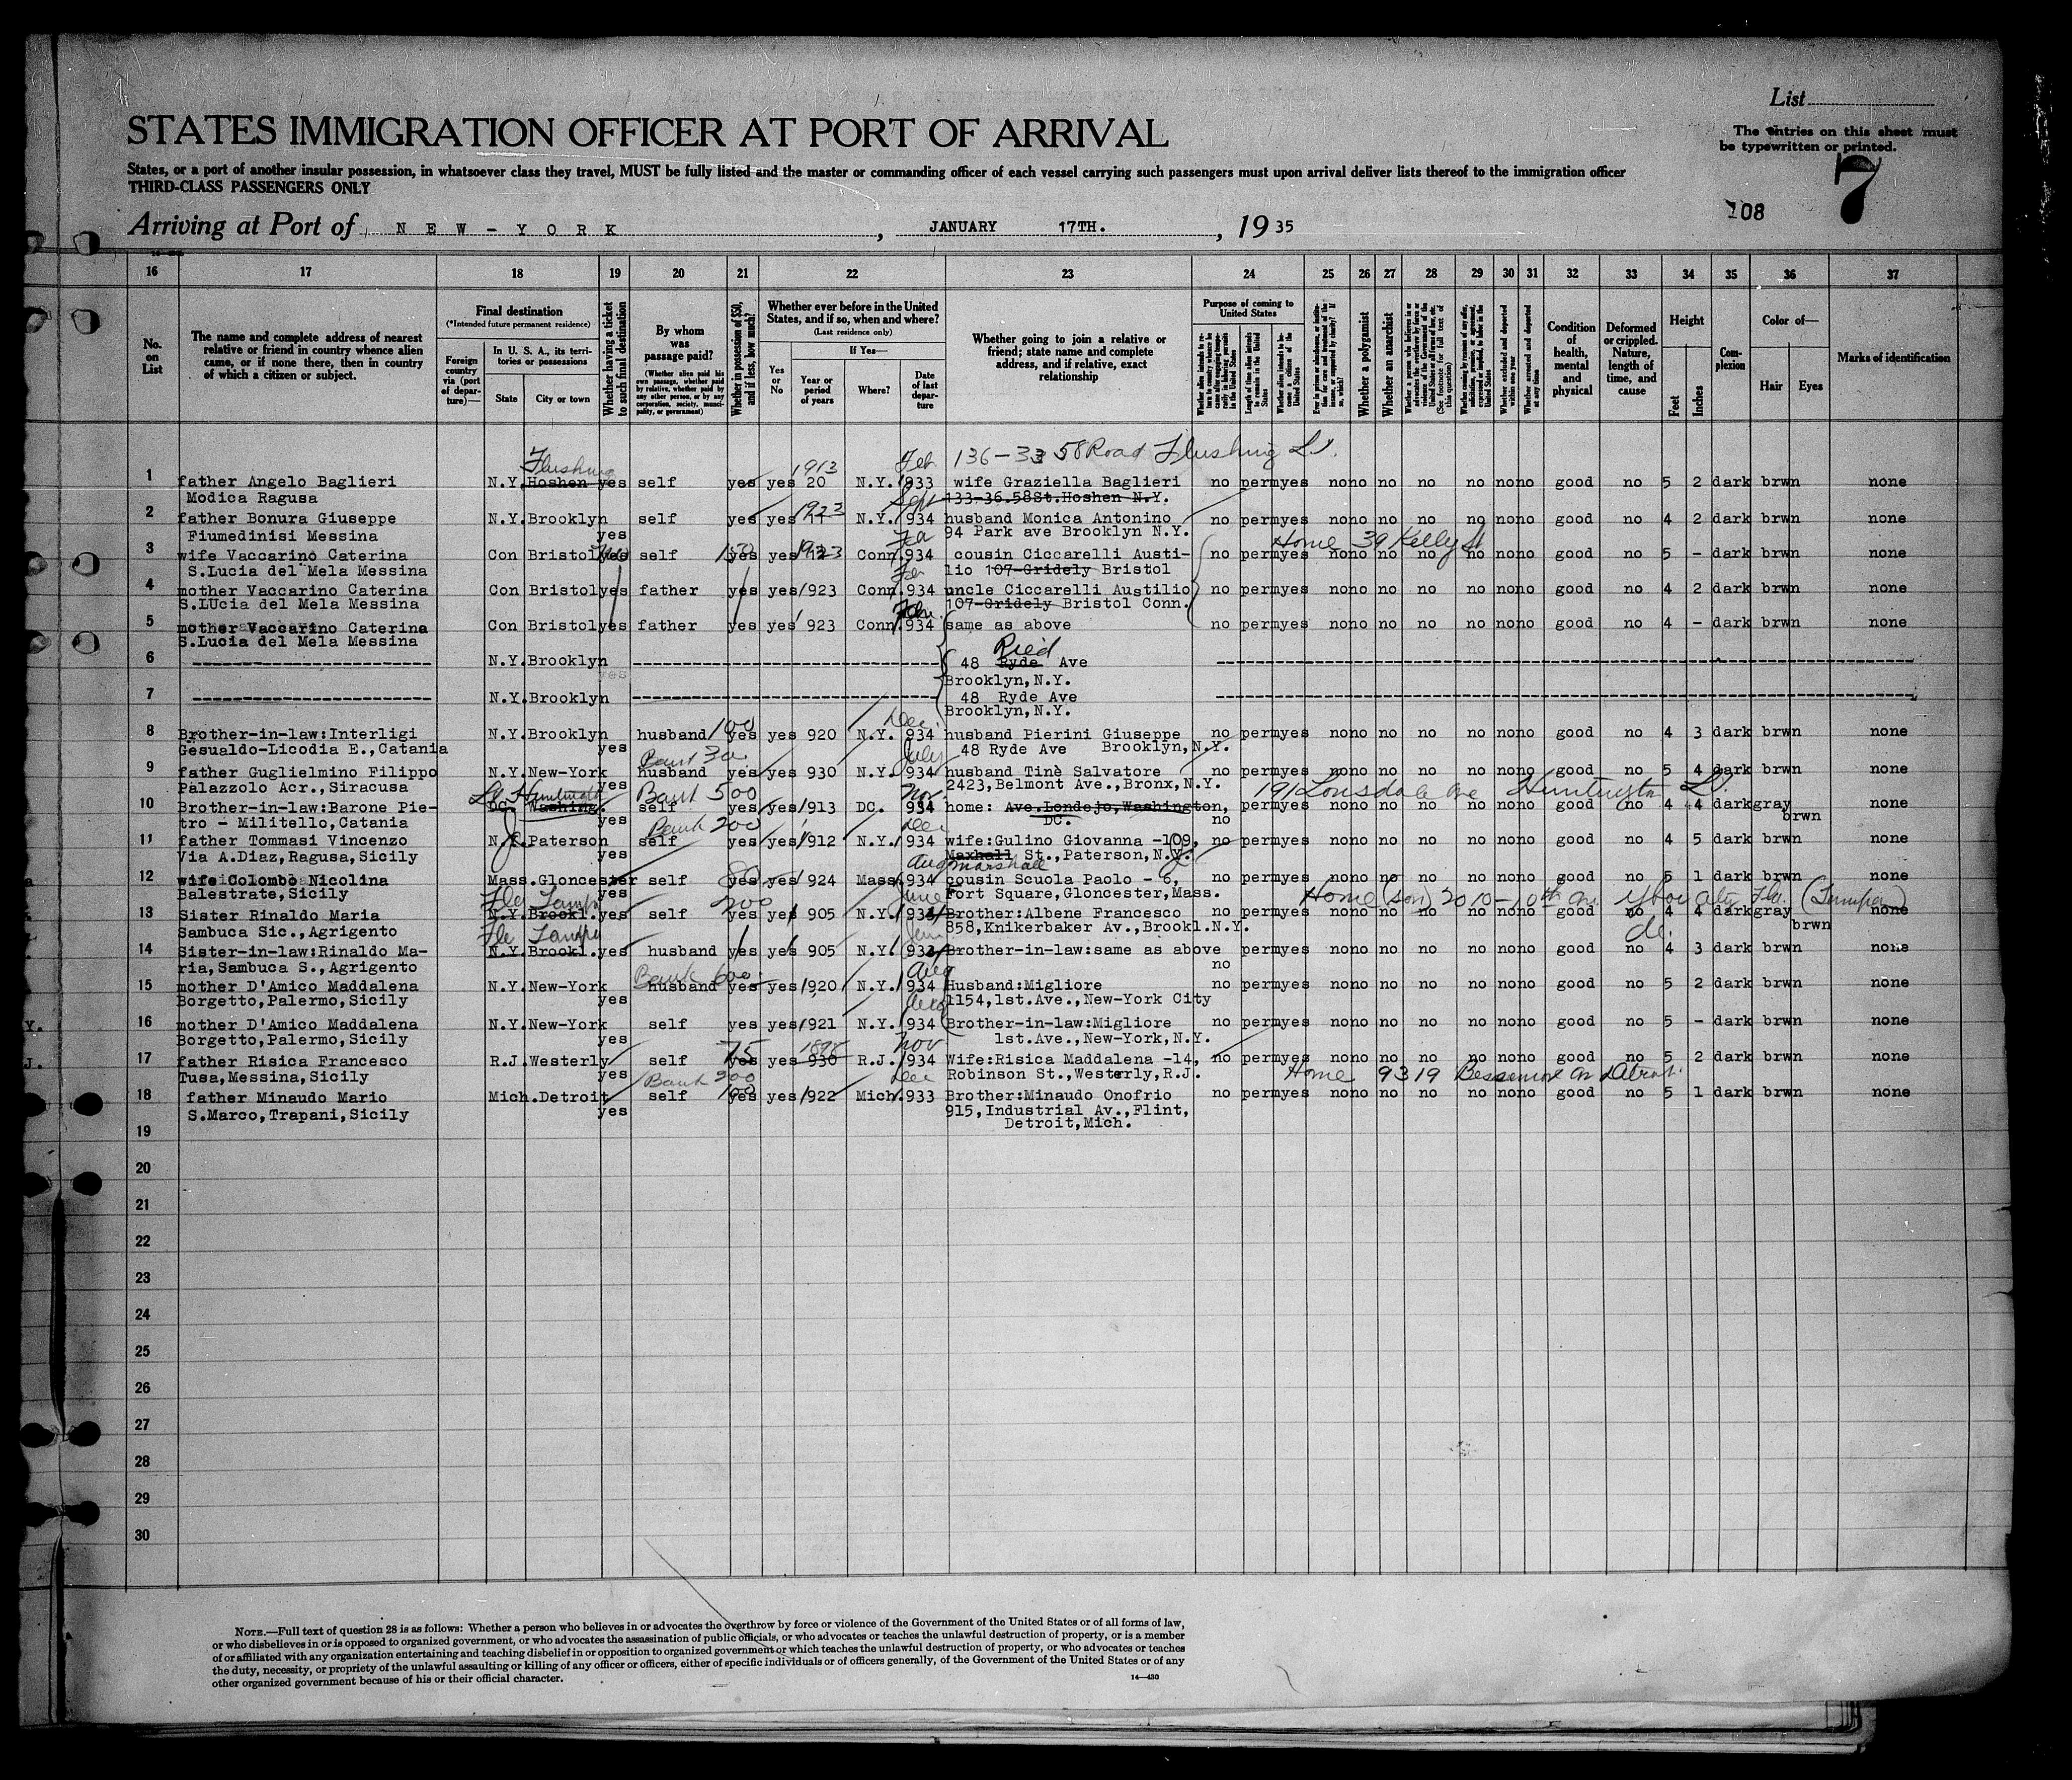 List
STATES IMMIGRATION OFFICER AT PORT OF ARRIVAL
The entries on this sheet must
be typewritten or printed.
States, or a port of another insular possession, in whatsoever class they travel, MUST be fully listed and the master or commanding officer of each vessel carrying such passengers must upon arrival deliver lists thereof to the immigration officer
THIRD-CLASS PASSENGERS ONLY
7
108
Arriving at Port of NEW-YORK, JANUARY 17TH., 1935
16 17 18 19 20 21 22 23 24 25 26 27 28 29 30 31 32 33 34 35 36 37
No. on List
The name and complete address of nearest relative or friend in country whence alien came, or if none there, then in country of which a citizen or subject.
Final destination
(*Intended future permanent residence)
Foreign country via (port of departure)—
In U. S. A., its territories or possessions
State
City or town
Whether having a ticket to such final destination
By whom was passage paid?
(Whether alien paid his own passage, whether paid by relative, whether paid by any other person, or by any corporation, society, municipality, or government)
Whether in possession of $50, and if less, how much?
Whether ever before in the United States, and if so, when and where?
(Last residence only)
Yes or No
If Yes—
Year or period of years
Where?
Date of last departure
Whether going to join a relative or friend; state name and complete address, and if relative, exact relationship
Purpose of coming to United States
Length of time alien intends to remain in the United States
Whether alien intends to become a citizen of the United States
Whether a polygamist
Whether an anarchist
Whether excluded and deported within one year
Whether arrested and deported at any time
Condition of health, mental and physical
Deformed or crippled. Nature, length of time, and cause
Height
Feet
Inches
Complexion
Color of—
Hair
Eyes
Marks of identification
Flushing 1913 Feb 136-33 58 Road Flushing L.I.
1 father Angelo Baglieri N.Y. Hoshen yes self yes yes 20 N.Y. 933 wife Graziella Baglieri no perm yes no no no no no no no good no 5 2 dark brwn none
Modica Ragusa 133-36.58St.Hoshen N.Y.
Sept 1923
2 father Bonura Giuseppe N.Y. Brooklyn self yes yes N.Y. 934 husband Monica Antonino no perm yes no no no no no no no good no 4 2 dark brwn none
Fiumedinisi Messina yes 94 Park ave Brooklyn N.Y.
Home 39 Kelly St
3 wife Vaccarino Caterina Con Bristol self yes yes 1923 Conn. 934 cousin Ciccarelli Austi- no perm yes no no no no no no no good no 5 - dark brwn none
S.Lucia del Mela Messina lio 107-Gridely Bristol
4 mother Vaccarino Caterina Con Bristol yes father yes yes 923 Conn. 934 uncle Ciccarelli Austilio no perm yes no no no no no no no good no 4 2 dark brwn none
S.LUcia del Mela Messina 107-Gridely Bristol Conn.
5 mother Vaccarino Caterina Con Bristol yes father yes yes 923 Conn 934 same as above no perm yes no no no no no no no good no 4 - dark brwn none
S.Lucia del Mela Messina
Ried
6 N.Y. Brooklyn 48 Ryde Ave
yes Brooklyn,N.Y.
7 N.Y. Brooklyn 48 Ryde Ave
Brooklyn,N.Y.
100 Dec.
8 Brother-in-law:Interligi N.Y. Brooklyn husband yes yes 920 N.Y. 934 husband Pierini Giuseppe no perm yes no no no no no no no good no 4 3 dark brwn none
Gesualdo-Licodia E.,Catania yes 48 Ryde Ave Brooklyn,N.Y.
July
9 father Guglielmino Filippo N.Y. New-York husband yes yes 930 N.Y. 934 husband Tinè Salvatore no perm yes no no no no no no no good no 5 4 dark brwn none
Palazzolo Acr., Siracusa yes 2423,Belmont Ave.,Bronx,N.Y.
Huntington 500 Nov 191 Lonsdale Ave Huntington L.I.
10 Brother-in-law:Barone Pie- DC. Washing. self yes yes 913 DC. 934 home: Ave.Londejo,Washington, no perm yes no no no no no no no good no 4 4 dark gray none
tro - Militello,Catania yes DC. no brwn
200 Dec
11 father Tommasi Vincenzo Paterson self yes yes 912 N.Y. 934 wife:Gulino Giovanna -109, no perm yes no no no no no no no good no 4 5 dark brwn none
Via A.Diaz,Ragusa,Sicily yes Maxhall St.,Paterson,N.Y.
Aug marshall
12 wife Colombo Nicolina Mass. Gloncester self yes yes 924 Mass 934 cousin Scuola Paolo - 6, no perm yes no no no no no no no good no 5 1 dark brwn none
Balestrate,Sicily yes Fort Square,Gloncester,Mass.
200 June Home (son) 2010-10th Av. Ybor City Fla. (Tampa)
13 Sister Rinaldo Maria N.Y. Brookl. yes self yes yes 905 N.Y. Brother:Albene Francesco no perm yes no no no no no no no good no 4 4 dark gray none
Sambuca Sic., Agrigento 858,Knikerbaker Av.,Brookl.N.Y. brwn
do.
14 Sister-in-law:Rinaldo Ma- N.Y. Brookl. yes husband yes yes 905 N.Y. Brother-in-law:same as above perm yes no no no no no no no good no 4 3 dark brwn none
ria,Sambuca S., Agrigento no
600 Aug
15 mother D'Amico Maddalena N.Y. New-York husband yes yes 920 N.Y. 934 Husband:Migliore no perm yes no no no no no no no good no 5 2 dark brwn none
Borgetto,Palermo,Sicily yes 1154,1st.Ave.,New-York City
16 mother D'Amico Maddalena N.Y. New-York self yes yes 921 N.Y. 934 Brother-in-law:Migliore no perm yes no no no no no no no good no 5 - dark brwn none
Borgetto,Palermo,Sicily yes 1st.Ave.,New-York,N.Y.
75 Nov
17 father Risica Francesco R.J. Westerly self yes yes 930 R.J. 934 Wife:Risica Maddalena -14, no perm yes no no no no no no no good no 5 2 dark brwn none
Tusa,Messina,Sicily yes Robinson St.,Westerly,R.J.
Dec Home 9319 Bessemore Av Detroit.
18 father Minaudo Mario Mich. Detroit self yes yes 922 Mich. 933 Brother:Minaudo Onofrio no perm yes no no no no no no no good no 5 1 dark brwn none
S.Marco,Trapani,Sicily yes 915,Industrial Av.,Flint,
Detroit,Mich.
19
20
21
22
23
24
25
26
27
28
29
30
NOTE.—Full text of question 28 is as follows: Whether a person who believes in or advocates the overthrow by force or violence of the Government of the United States or of all forms of law,
or who disbelieves in or is opposed to organized government, or who advocates the assassination of public officials, or who advocates or teaches the unlawful destruction of property, or is a member
of or affiliated with any organization entertaining and teaching disbelief in or opposition to organized government or which teaches the unlawful destruction of property, or who advocates or teaches
the duty, necessity, or propriety of the unlawful assaulting or killing of any officer or officers, either of specific individuals or of officers generally, of the Government of the United States or of any
other organized government because of his or their official character.
14—430